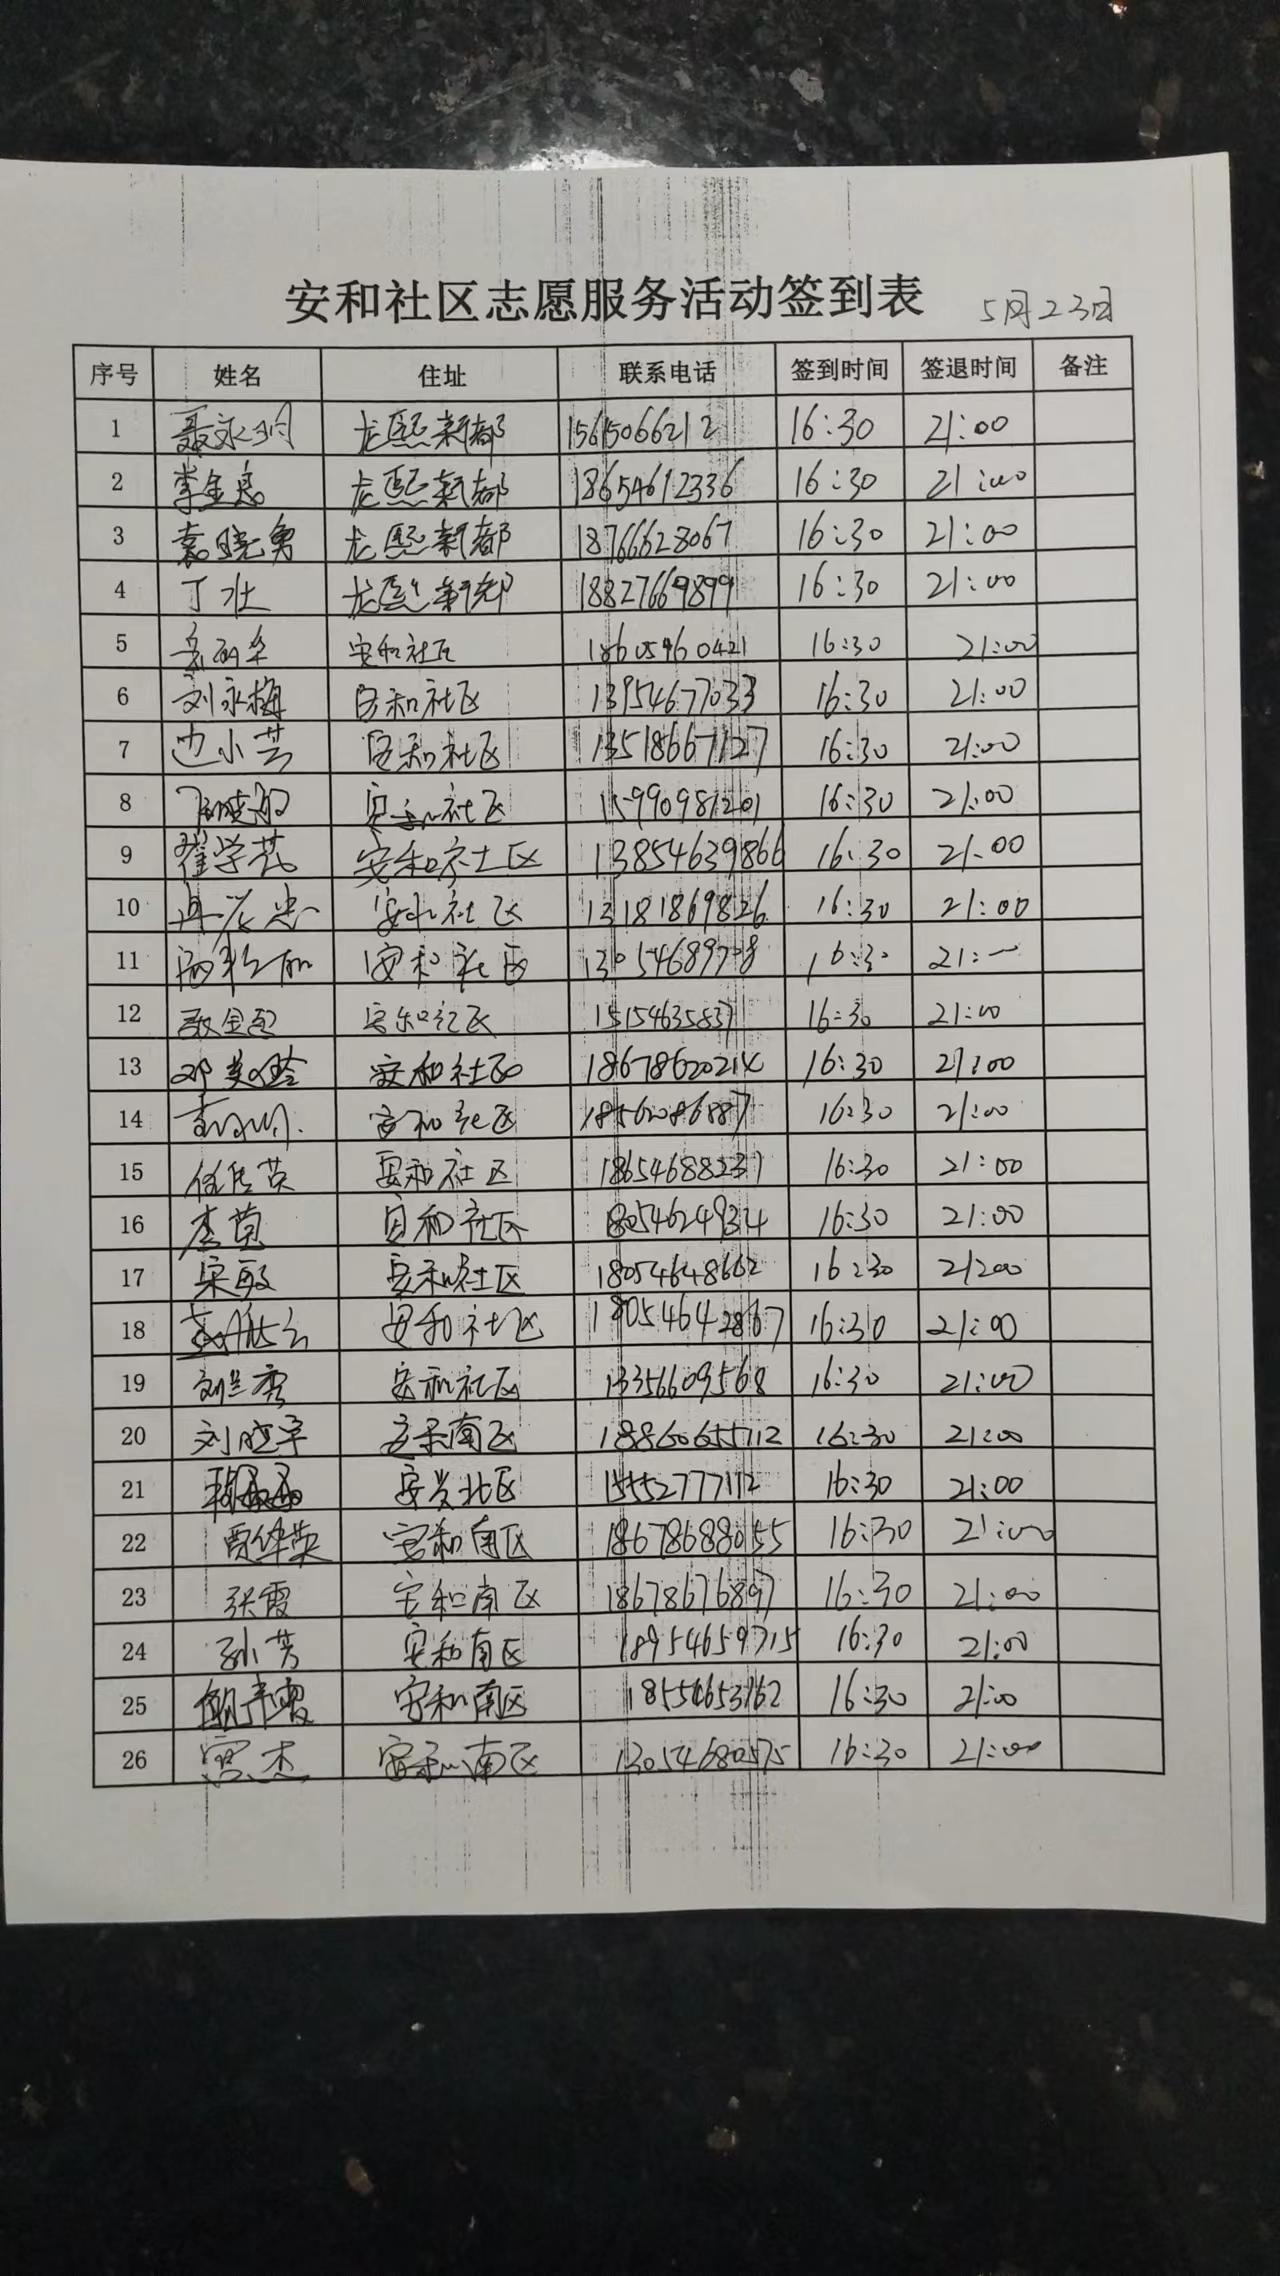 安和社区志愿服务活动签到表 5月23日
序号 姓名 住址 联系电话 签到时间 签退时间 备注
1 聂永明 龙熙新都 15615066212 16:30 21:00
2 李金良 龙熙新都 18654612336 16:30 21:00
3 袁晓勇 龙熙新都 18766628067 16:30 21:00
4 丁壮 龙熙新都 18827669899 16:30 21:00
5 安和社区 18605460421 16:30 21:00
6 刘永梅 安和社区 13954677033 16:30 21:00
7 边小芸 安和社区 13518667127 16:30 21:00
8 安和社区 15990981201 16:30 21:00
9 翟学花 安和社区 13854639866 16:30 21:00
10 安和社区 13181869826 16:30 21:00
11 安和社区 13054689708 16:30 21:
12 安和社区 16:30 21:00
13 邓美玲 安和社区 18678620214 16:30 21:00
14 安和社区 18562086887 16:30 21:00
15 任佳英 安和社区 18654688231 16:30 21:00
16 李莫 安和社区 18054624934 16:30 21:00
17 宋敏 安和社区 18054648662 16:30 21:00
18 安和社区 18054642867 16:30 21:00
19 刘兰香 安和社区 13356609568 16:30 21:00
20 刘晓宇 南区 18860655112 16:30 21:00
21 安兴北区 15552777112 16:30 21:00
22 贾华英 安和南区 18678688055 16:30 21:00
23 张霞 安和南区 18678676897 16:30 21:00
24 孙芳 安和南区 18954659715 16:30 21:00
25 安和南区 18554653162 16:30 21:00
26 宫杰 安和南区 13054680575 16:30 21:00